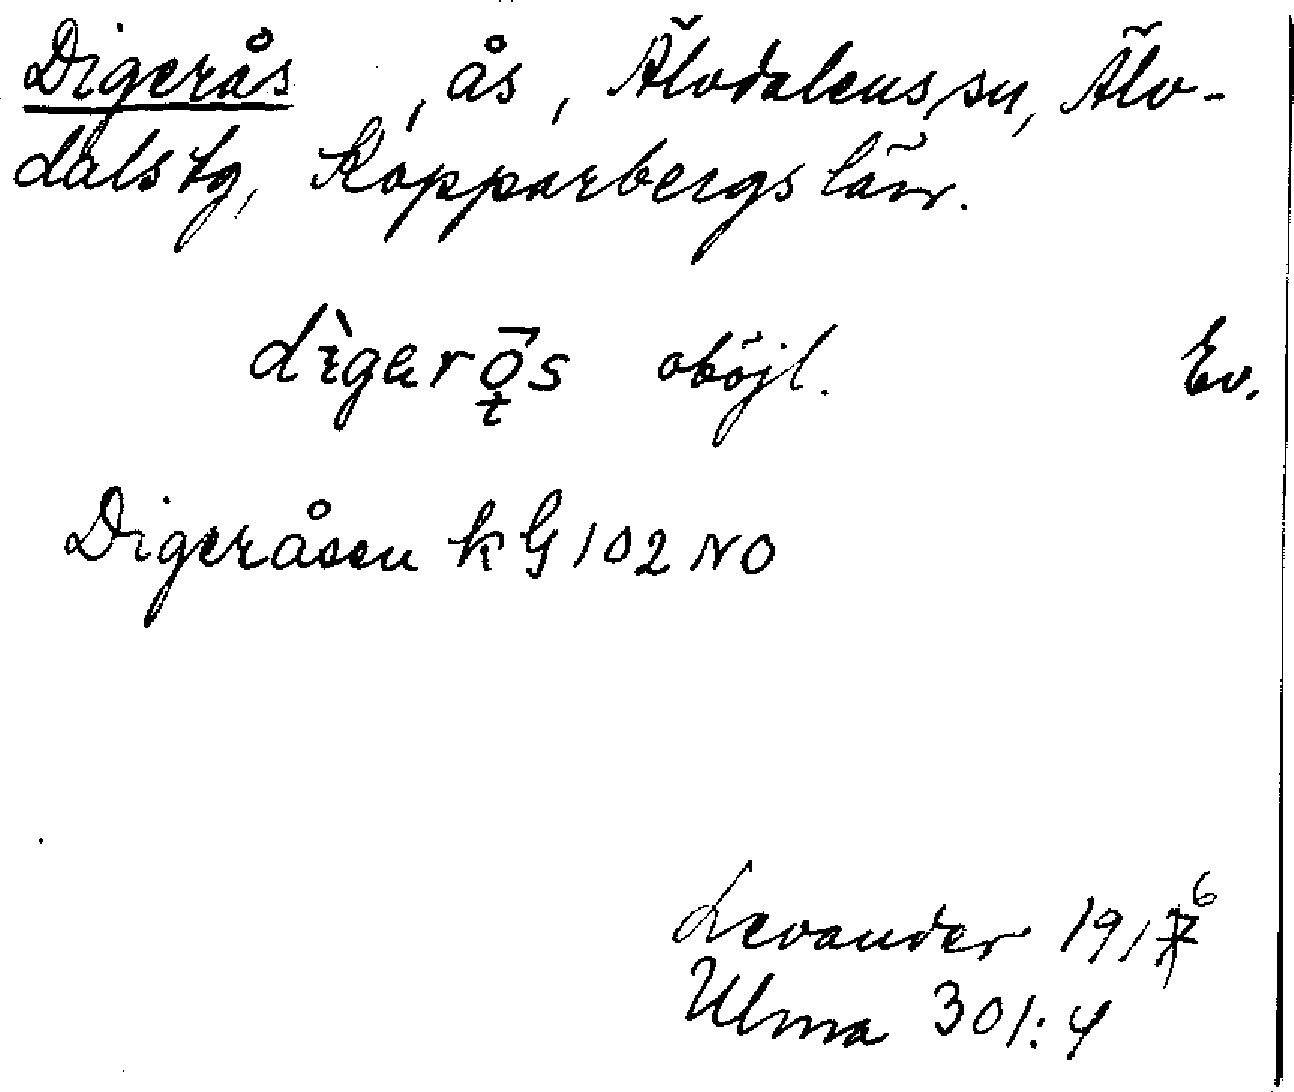 Digerås , ås, Älvdalens sn, Älv-
dals tg, Kopparbergs län.
dìgerǭs oböjl. Ev.
Digeråsen k G 102 NO
Levander 1916
Ulma 301:4